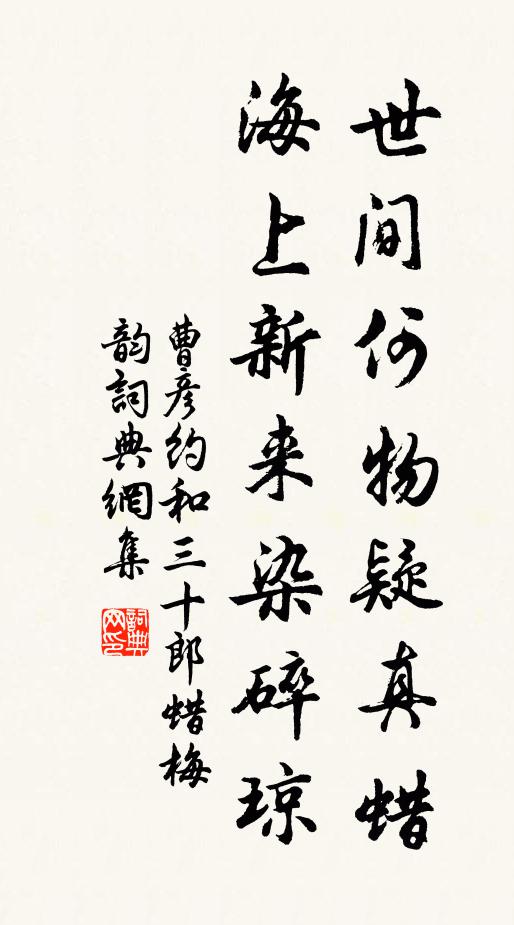 世间何物疑真蜡
海上新来染碎琼
曹彦约和三十郎蜡梅
韵詞典網集
詞典网印